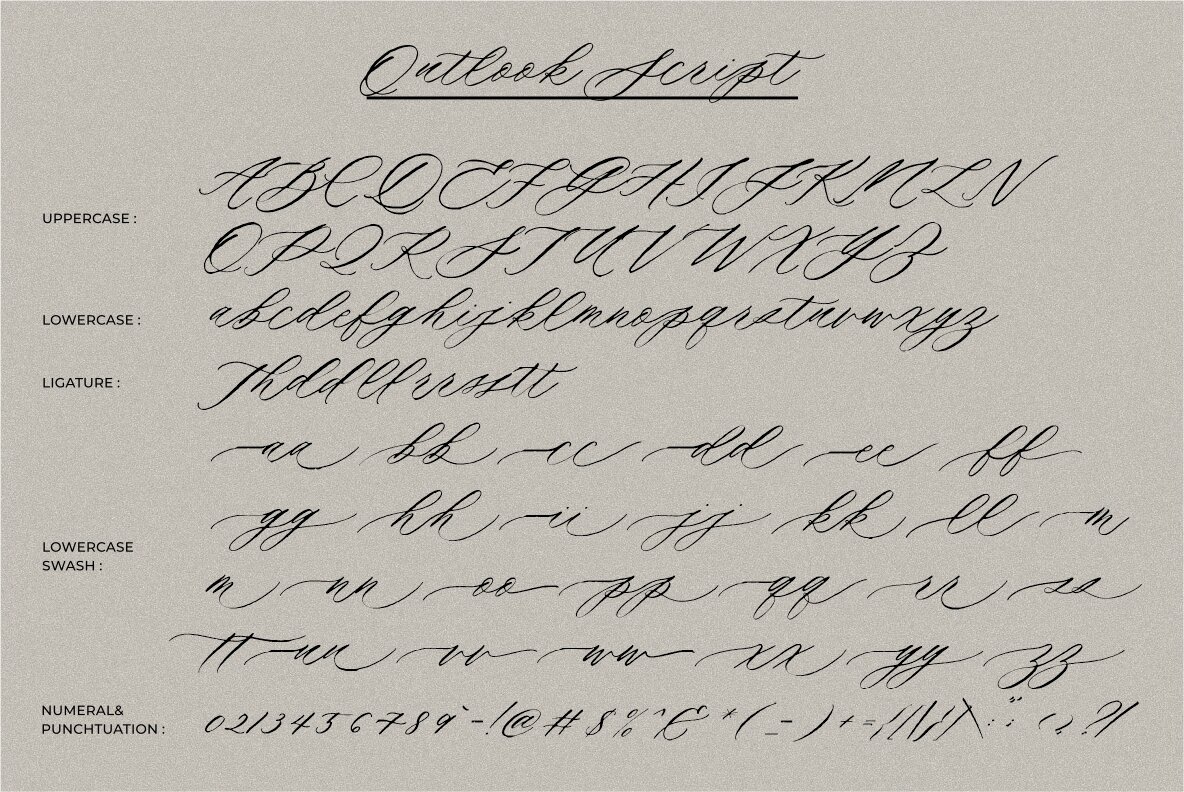 Outlook Script
UPPERCASE :
A B C D E F G H I J K M L N
O P Q R S T U V W X Y Z
LOWERCASE :
a b c d e f g h i j k l m n o p q r s t u v w x y z
LIGATURE :
Th dd ll rr ss tt
LOWERCASE
SWASH :
a a b b c c d d e e f f
g g h h i i j j k k l l m
m n n o o p p q q r r s s
t t u u v v w w x x y y z z
NUMERAL&
PUNCHTUATION :
0 2 1 3 4 5 6 7 8 9 ` - ! @ # $ % ^ & * ( _ ) + =